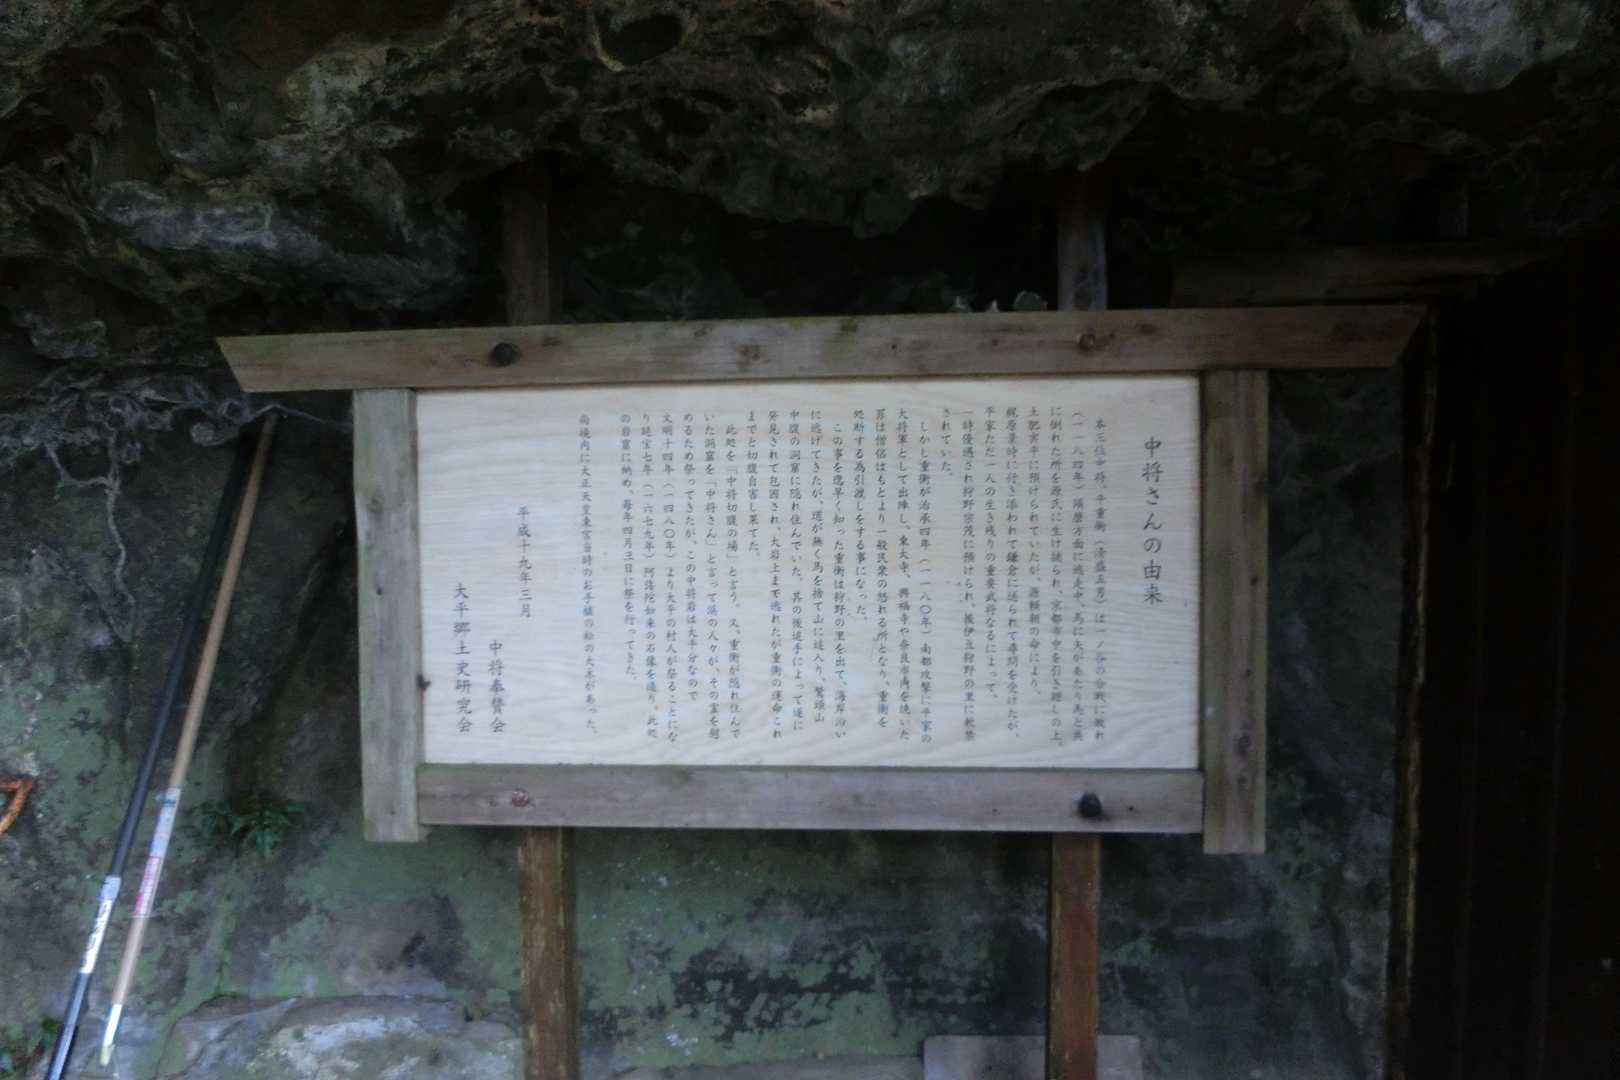 中将さんの由来
本三位中将、平重衡(清盛五男)は一ノ谷の合戦に敗れ
(一一八四年)須磨方面に逃走中、馬に矢があたり馬と共
に倒れた所を源氏に生け捕られ、京都市中を引き廻しの上、
土肥実平に預けられていたが、源頼朝の命により、
梶原景時に付き添われて鎌倉に送られて尋問を受けたが、
平家ただ一人の生き残りの重要武将なるによって、
一時優遇され狩野宗茂に預けられ、後伊豆狩野の里に軟禁
されていた。
しかし重衡が治承四年(一一八〇年)南都攻撃に平家の
大将軍として出陣し、東大寺、興福寺や奈良市内を焼いた
罪は僧侶はもとより一般民衆の怒れる所となり、重衡を
処断する為引渡しをする事になった。
この事を逸早く知った重衡は狩野の里を出て、海岸沿い
に逃げてきたが、道が無く馬を捨て山に逃入り、鷲頭山
中腹の洞窟に隠れ住んでいた、其の後追手によって遂に
発見されて包囲され、大岩上まで逃れたが重衡の運命これ
までと切腹自害し果てた。
此処を「中将切腹の場」と言う。又、重衡が隠れ住んで
いた洞窟を「中将さん」と言って浜の人々が、その霊を慰
めるため祭ってきたが、この中将岩は大平分なので
文明十四年(一四八〇年)より大平の村人が祭ることにな
り延宝七年(一六七九年)阿弥陀如来の石像を造り。此処
の岩窟に納め、毎年四月三日に祭を行ってきた。
尚境内に大正天皇東宮当時のお手植の松の大木があった、
平成十九年三月
中将奉賛会
大平郷土史研究会